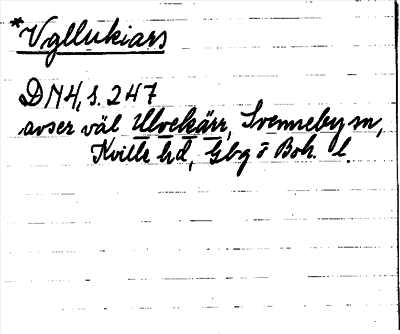 *Vgllukiars
DN4, s. 247
avser väl Ulvekärr, Svenneby sn,
Kville hd, Gbg o Boh. l.